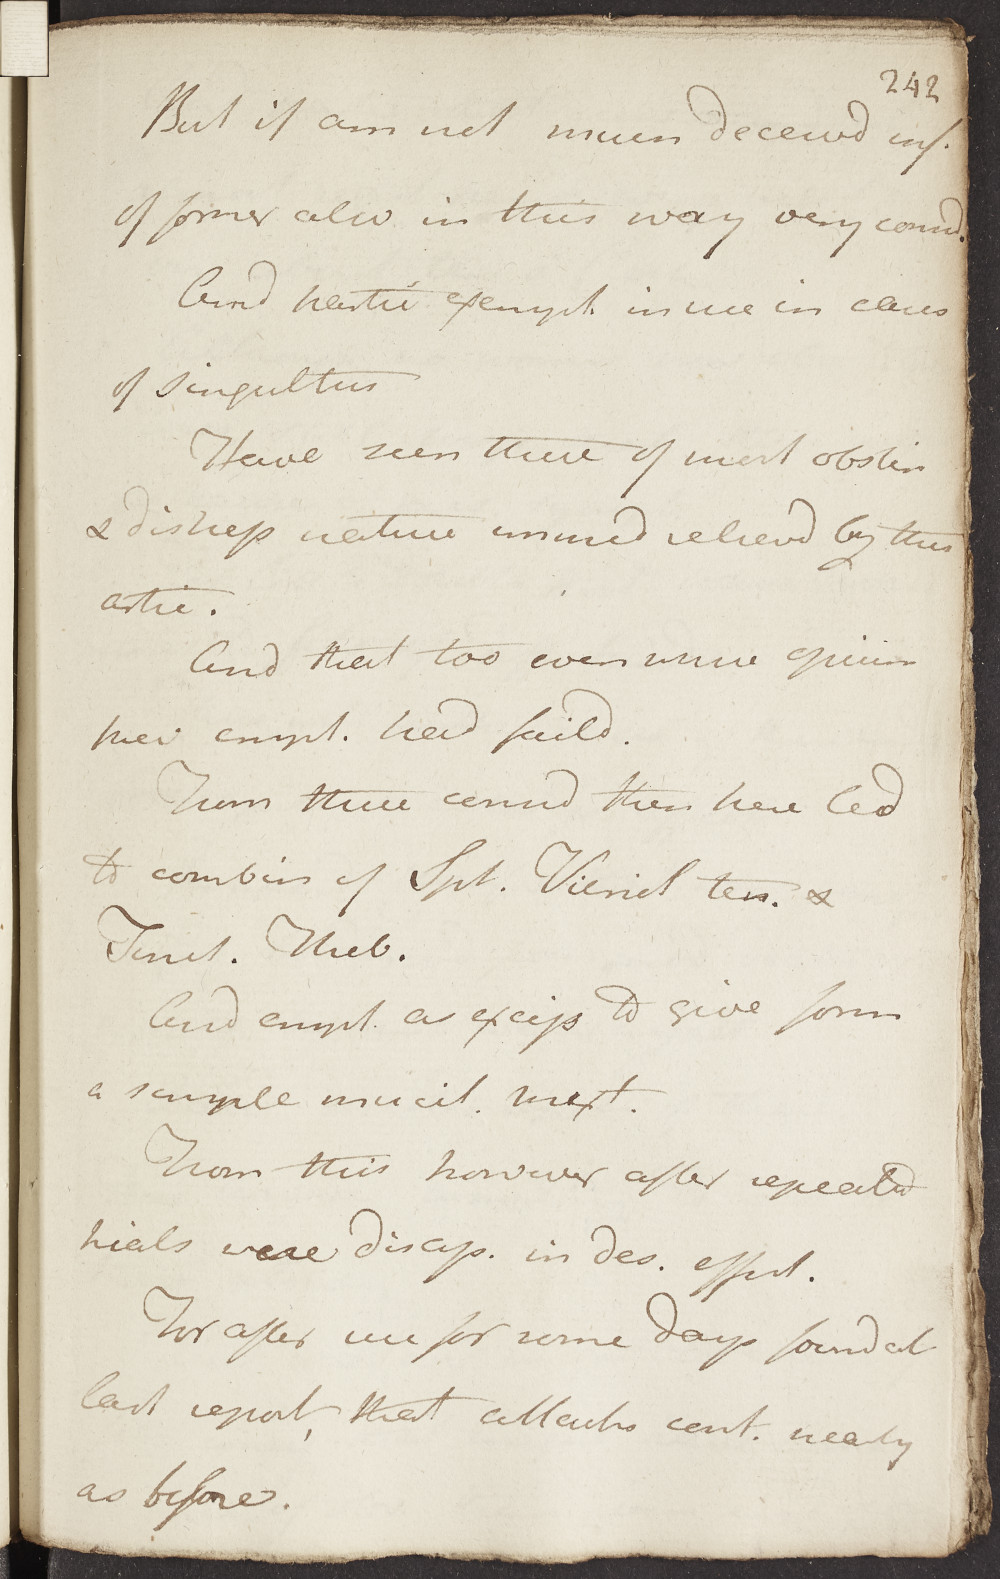 242
But if am not much deceivd inf.
of former also in this way very consid.
And partic exempl. in use in cases
of singultus
Have seen these of most obstin
& distress nature immed relievd by this
artic.
And that too even where opium
prev empl. had faild.
From these consid then here led
to combin of Spt. Vitriol ten. &
Tinct. Theb.
And empl. as excip to give form
a simple mucil. mixt.
From this however after repeated
trials were disap. in des. effect.
For after use for some days found at
last report, that attacks cont. nearly
as before.